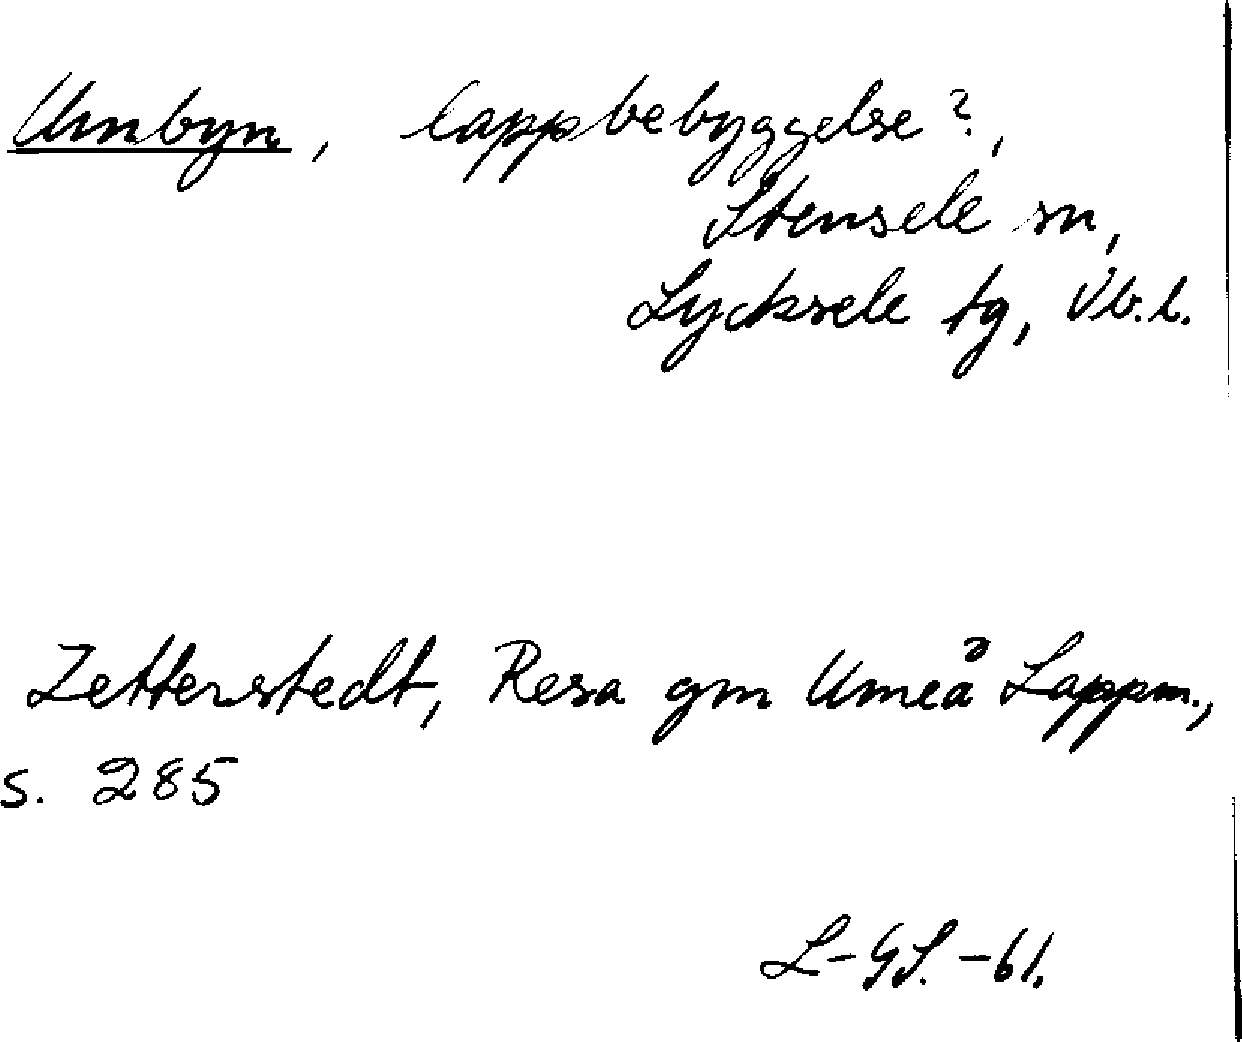 Umbyn, lappbebyggelse?,
Stensele sn,
Lycksele tg, Vb.l.
Zetterstedt, Resa gm Umeå Lappm.,
s. 285
L-GS.-61.